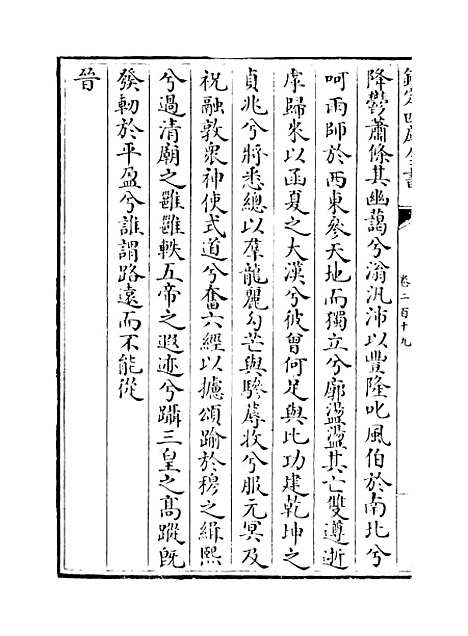 欽定四庫全書
卷二百十九
降鬱蕭條其幽藹兮滃汎沛以豐隆叱風伯於南北兮
呵雨師於西東參天地而獨立兮廓盪盪其亡雙遵逝
虖歸來以函夏之大漢兮彼曾何足與比功建乾坤之
貞兆兮將悉總以羣龍麗勾芒與驂蓐收兮服元冥及
祝融敦衆神使式道兮奮六經以攄頌踰於穆之緝熙
兮過清廟之雝雝軼五帝之遐迹兮躡三皇之髙蹤既
發軔於平盈兮誰謂路遠而不能從
晉